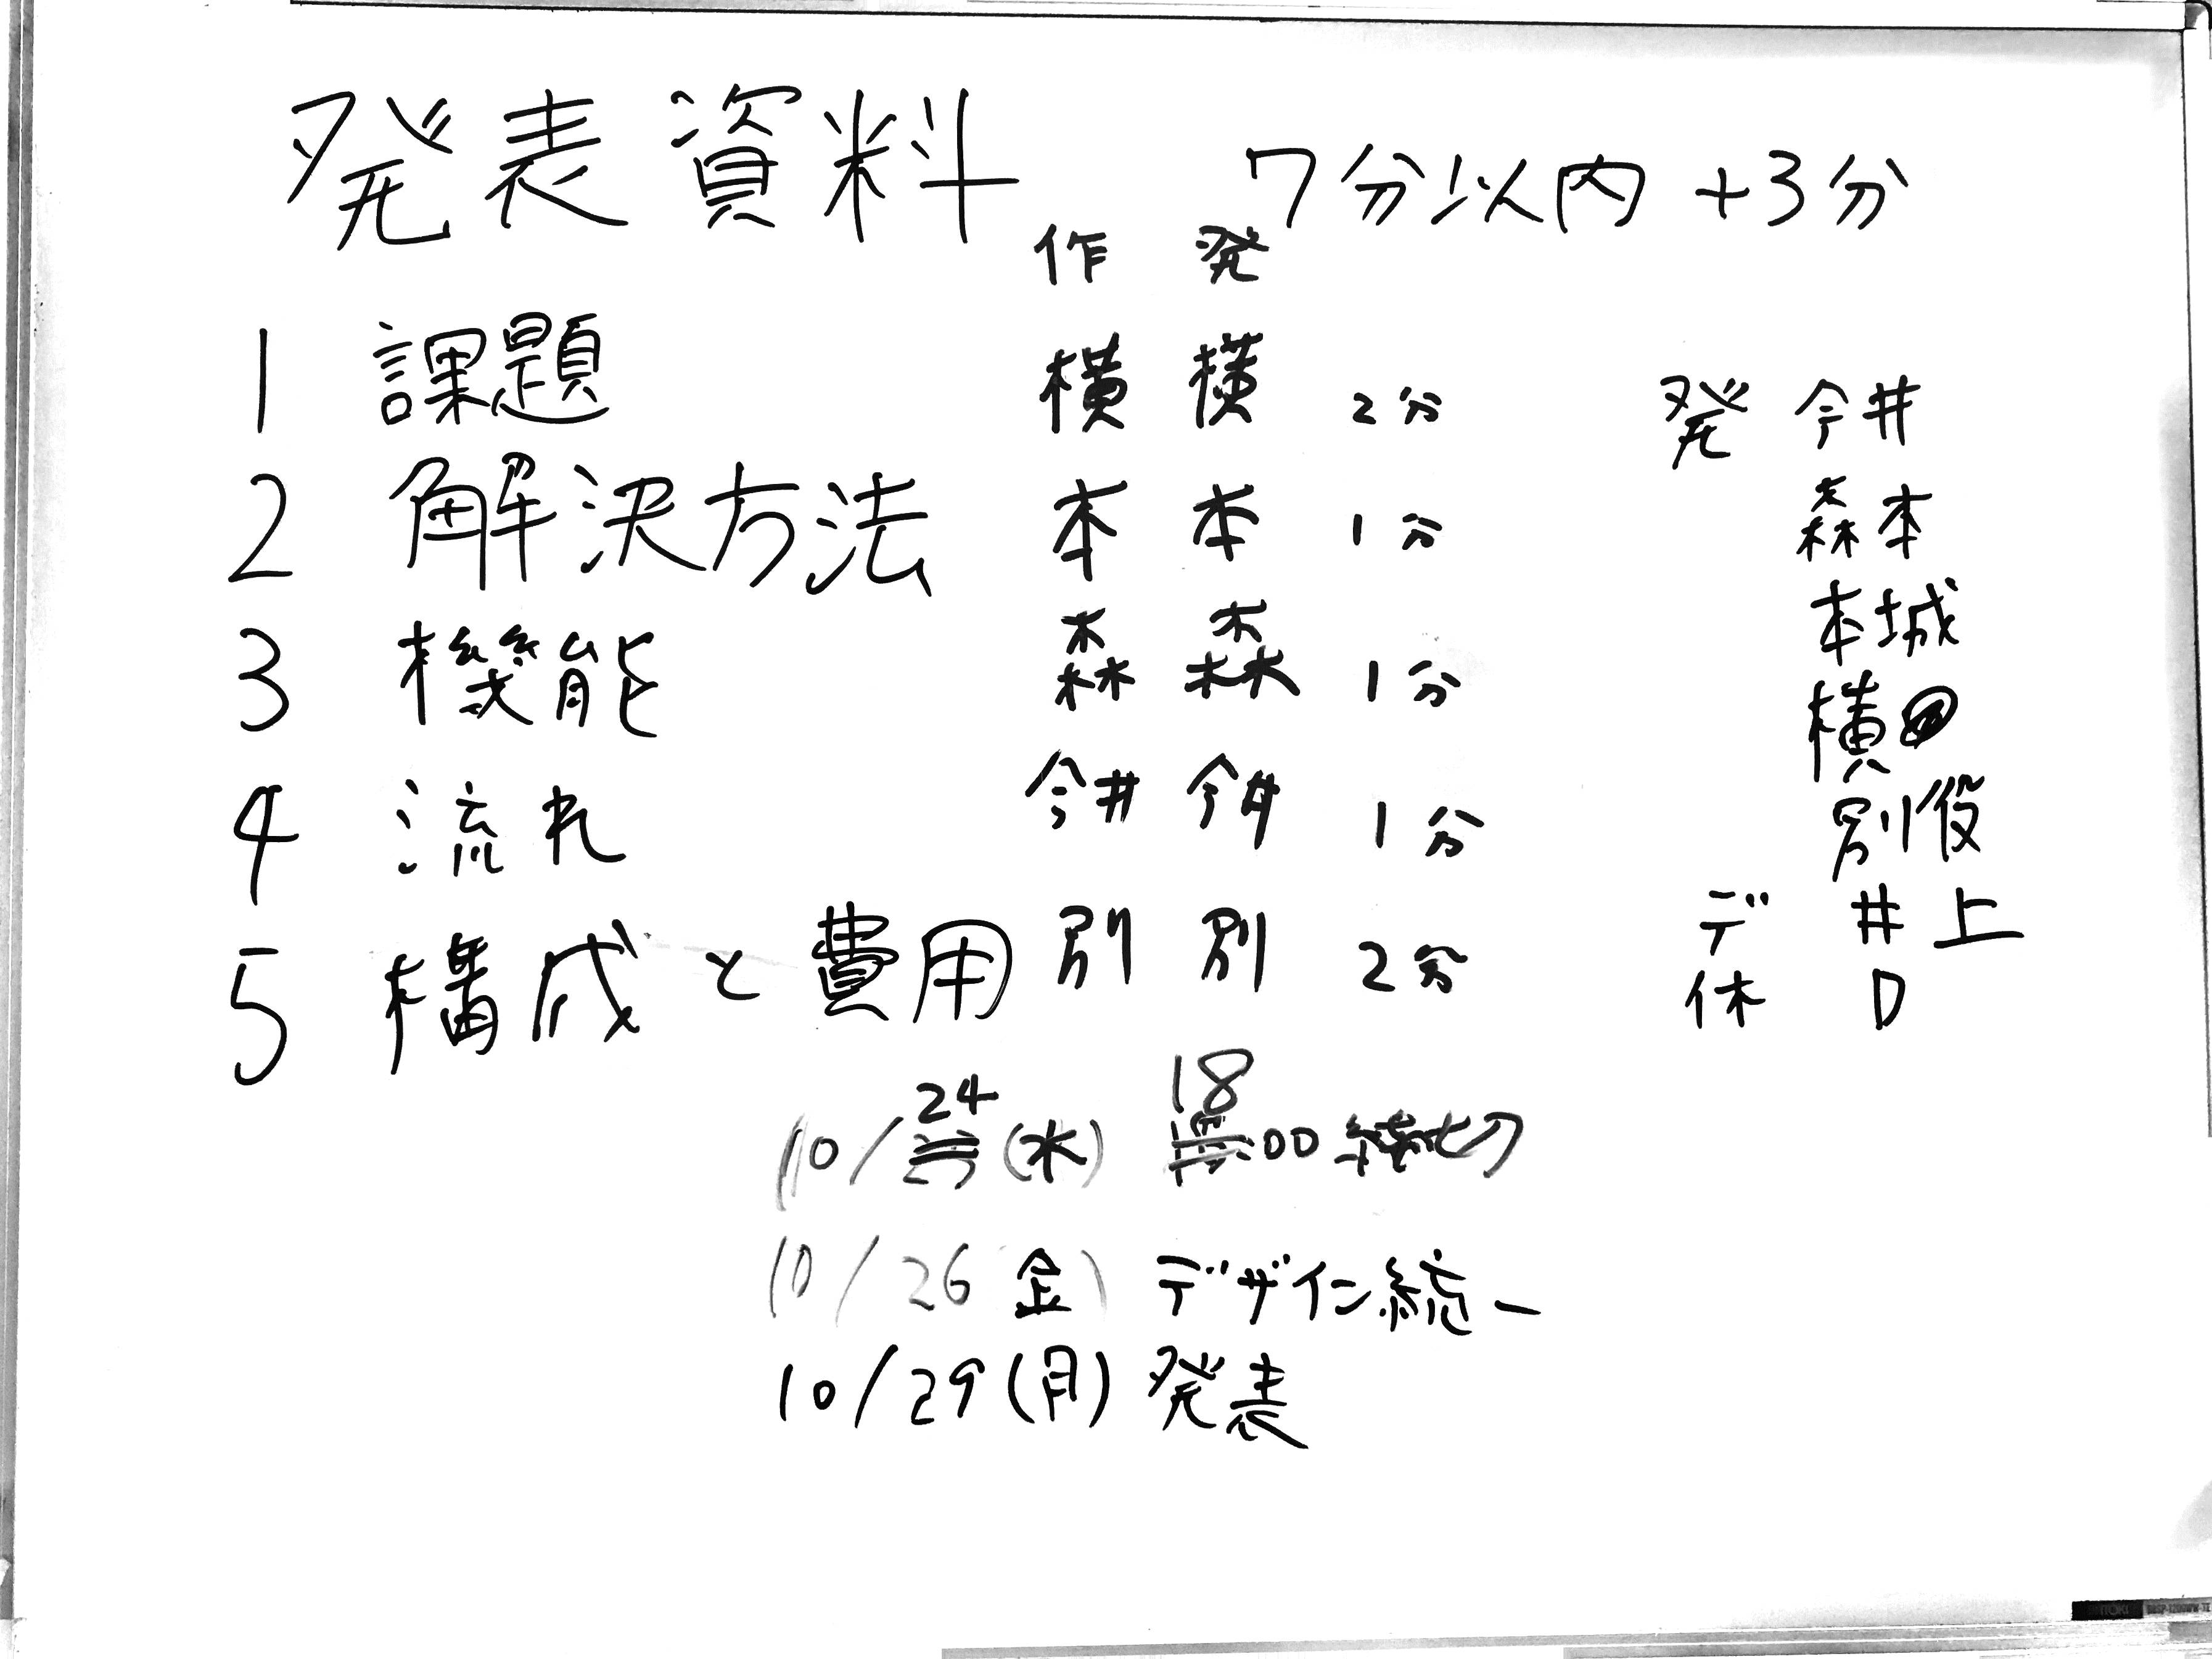 発表資料 7分以内 +3分
作 発
1 課題 横 横 2分
2 解決方法 本 本 1分
3 機能 森 森 1分
4 流れ 今井 今井 1分
5 構成と費用 別 別 2分
発 今井
森本
本城
横田
別役
デ 井上
休 D
10/24(水) 18:00 締切
10/26 金) デザイン統一
10/29(月) 発表